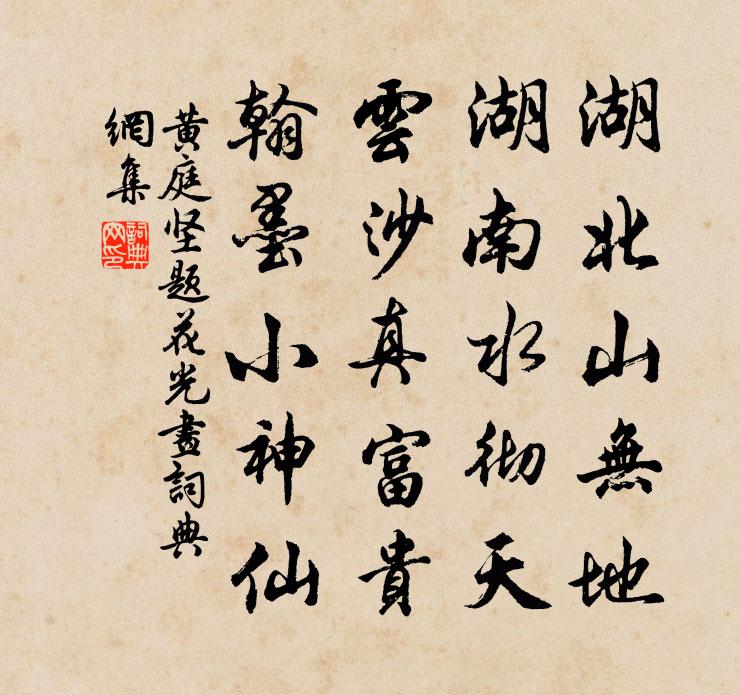 湖北山無地
湖南水彻天
雲沙真富貴
翰墨小神仙
黄庭坚題花光畫詞典
網集
詞典
网印